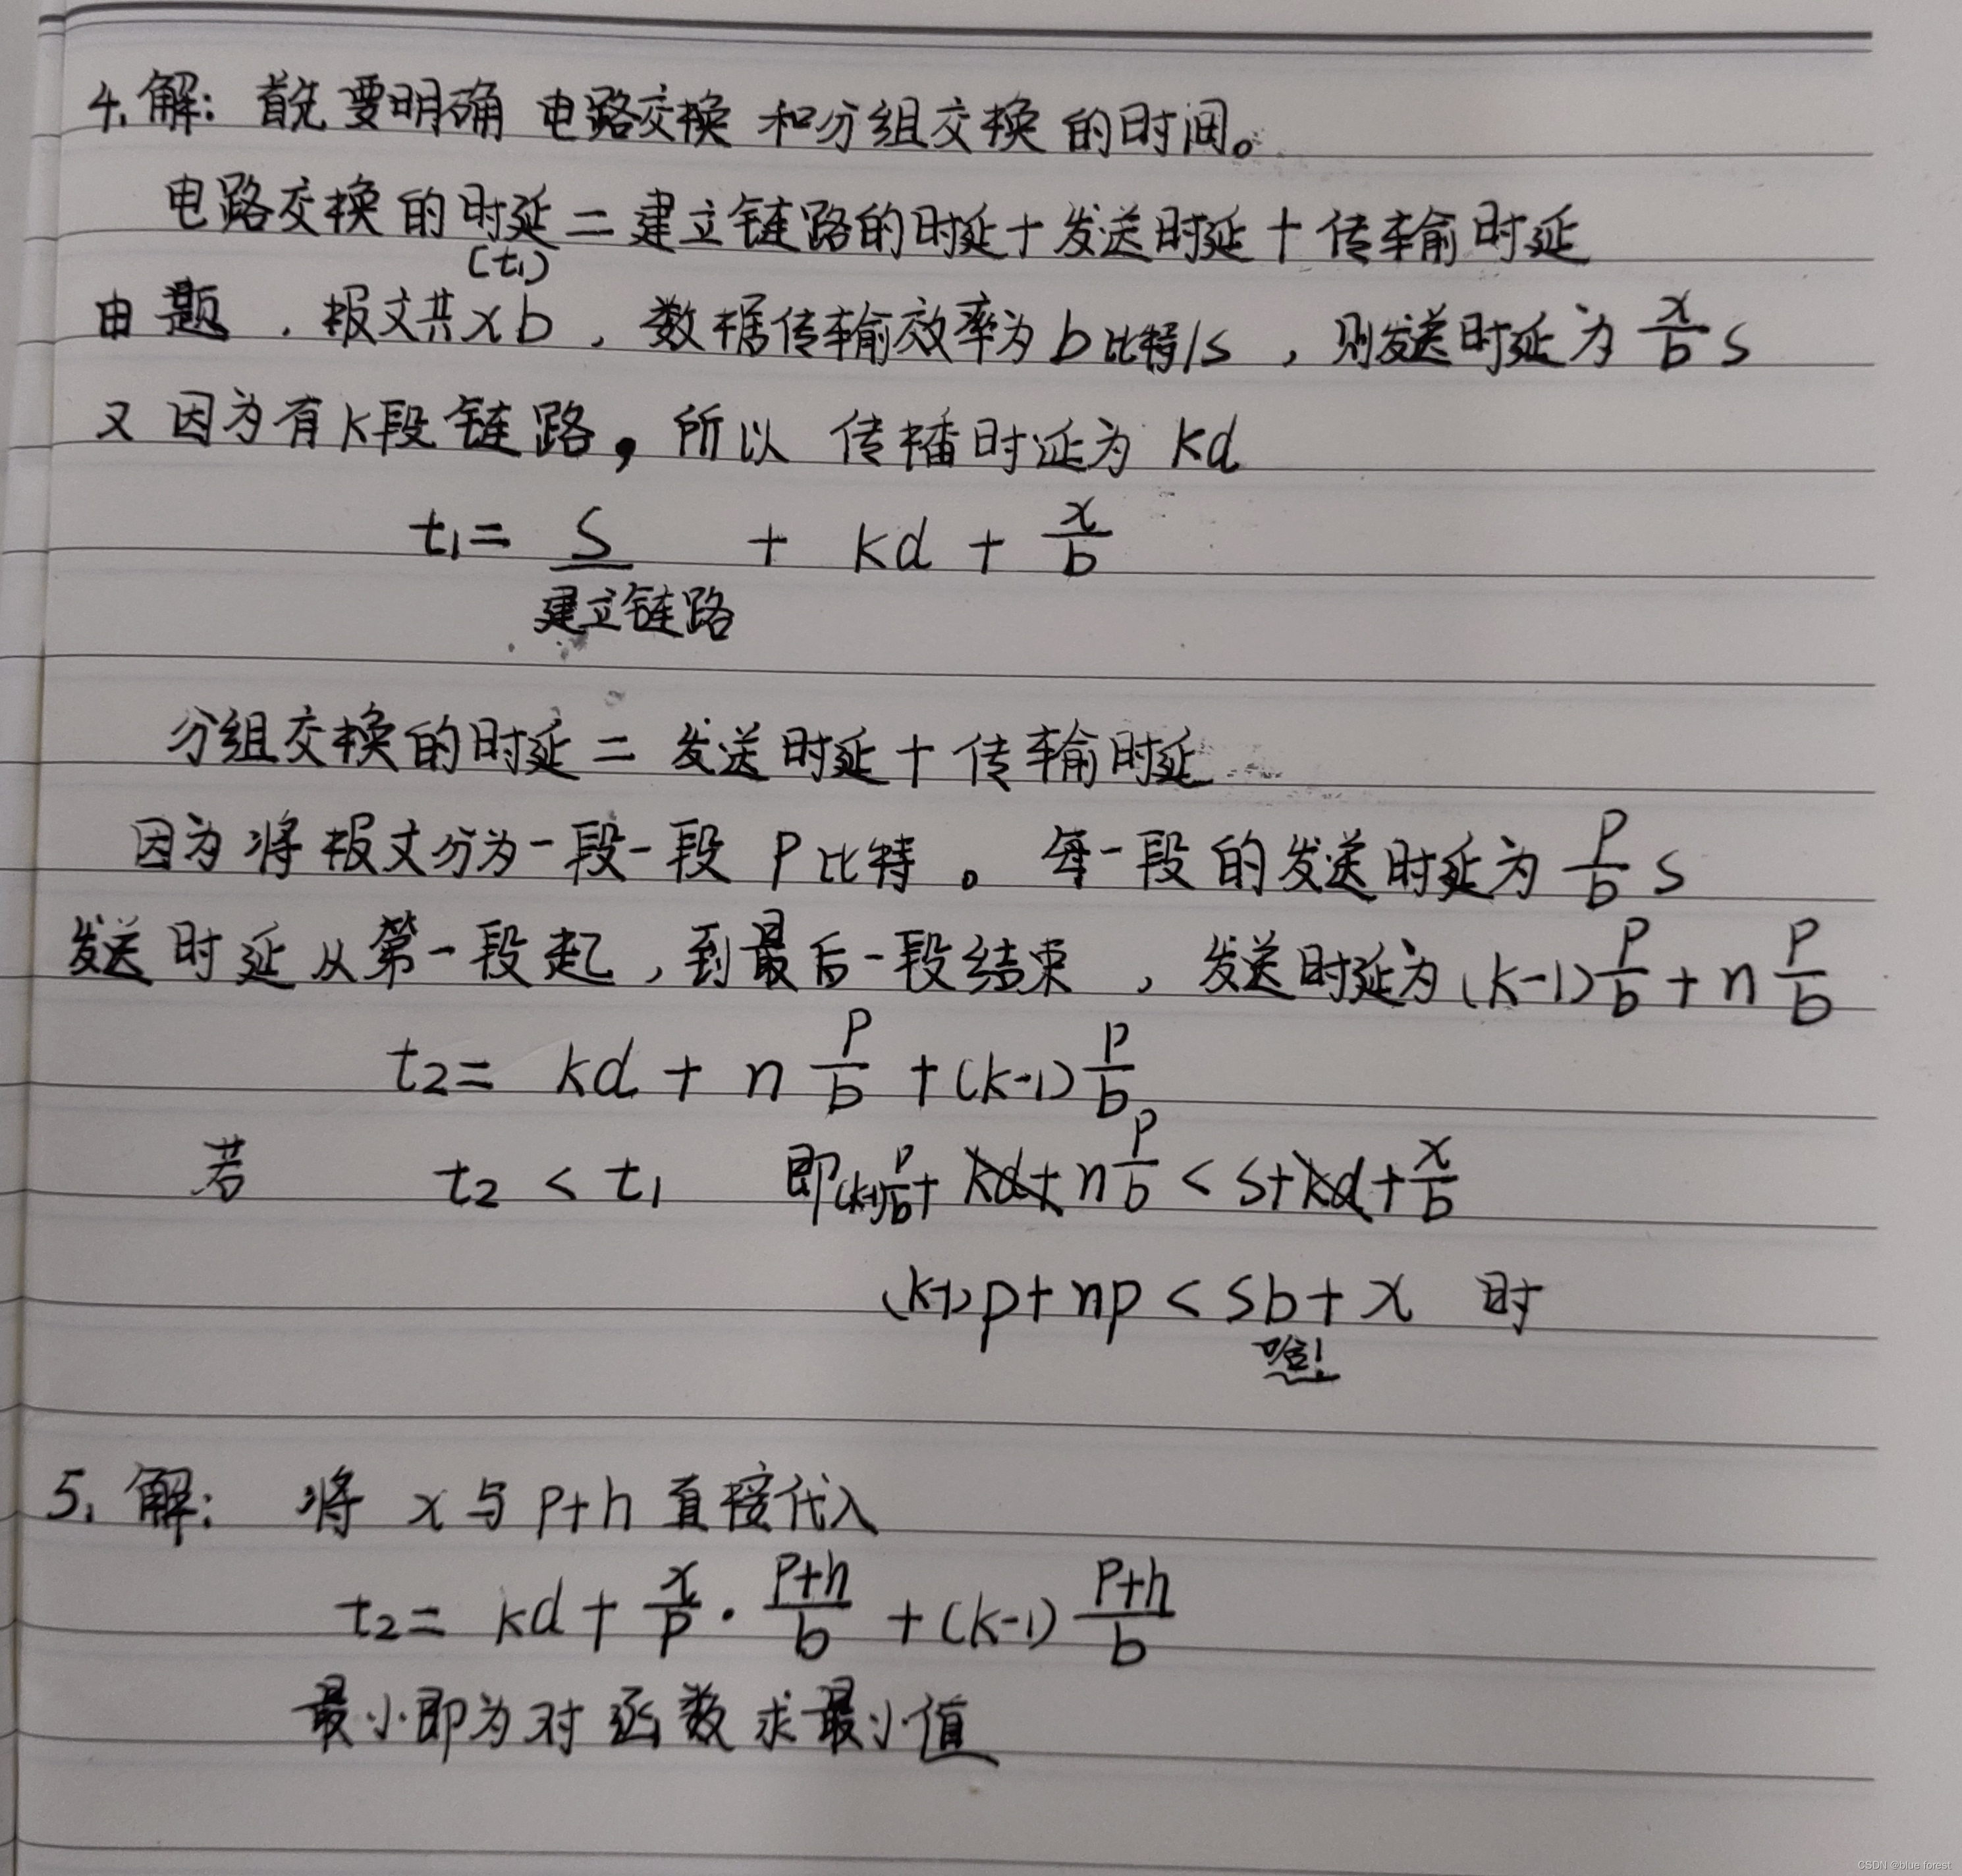 4.解：首先要明确 电路交换 和分组交换 的时间。
电路交换的时延=建立链路的时延+发送时延+传输时延
(t₁)
由题，报文共xb，数据传输效率为b比特/s，则发送时延为 x/b s
又因为有k段链路，所以 传播时延为 kd
t₁= s + kd + x/b
建立链路
分组交换的时延=发送时延+传输时延
因为将报文分为一段一段 P比特。每一段的发送时延为 P/b s
发送时延从第一段起，到最后一段结束，发送时延为(k-1) P/b + n P/b
t₂= kd + n P/b +(k-1) P/b
若 t₂ < t₁ 即(k-1) P/b + kd+ n P/b < s+kd+ x/b
(k-1)p+np < sb+x 时
5.解：将 x与P+h 直接代入
t₂= kd+ x/P · P+h/b +(k-1) P+h/b
最小即为对函数求最小值
CSDN @blue forest